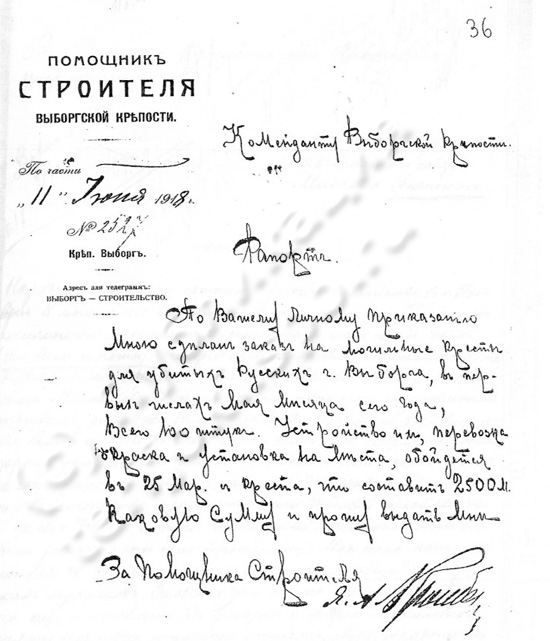 36
ПОМОЩНИКЪ
СТРОИТЕЛЯ
ВЫБОРГСКОЙ КРѢПОСТИ.
По части
„11" Іюня 1918 г.
№
Крѣп. Выборгъ.
Адресъ для телеграммъ:
ВЫБОРГЪ — СТРОИТЕЛЬСТВО.
Коменданту Выборгской крѣпости.
Рапортъ.
По Вашему личному приказанію
мною сдѣланъ заказъ на могильные кресты
для убитыхъ русскихъ г. Выборга, въ пер-
выхъ числахъ Мая мѣсяца сего года,
всего 100 штукъ. Устройство ихъ, перевозка
окраска и установка на мѣста, обойдется
въ 25 мар. креста, что составитъ 2500 м.
каковую сумму и прошу выдать мнѣ
За Помощника Строителя